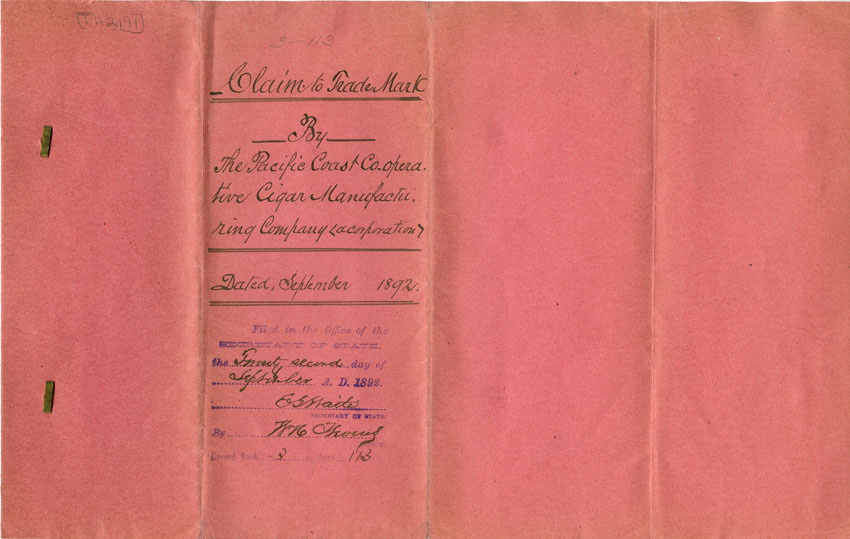 TM2191
3-113
Claim to Trade Mark
By
The Pacific Coast Co.opera.
tive Cigar Manufactu.
ring Company (a corporation)
Dated, September 1892.
Filed in the Office of the
SECRETARY OF STATE,
the Twenty second day of
September A. D. 1892.
E G Waite
SECRETARY OF STATE.
By W H
Record Book 3 Page 113